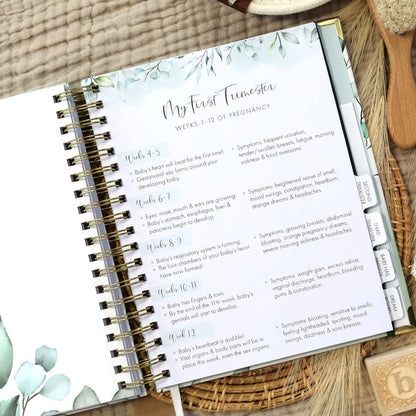 My First Trimester
WEEKS 1-12 OF PREGNANCY
Weeks 4-5
• Baby's heart will beat for the first time!
• Gestational sac forms around your
developing baby
• Symptoms: frequent urination,
tender/swollen breasts, fatigue, morning
sickness & food aversions
Weeks 6-7
• Eyes, nose, mouth & ears are growing
• Baby's stomach, esophagus, liver &
pancreas begin to develop.
• Symptoms: heightened sense of smell,
mood swings, constipation, heartburn,
strange dreams & headaches
Weeks 8-9
• Baby's respiratory system is forming.
• The four chambers of your baby's heart
have now formed!
• Symptoms: growing breasts, abdominal
bloating, strange pregnancy dreams,
severe morning sickness & headaches
Weeks 10-11
• Baby has fingers & toes.
• By the end of the 11th week, baby's
genitals will start to develop
• Symptoms: weight gain, excess saliva,
vaginal discharge, heartburn, bleeding
gums & constipation.
Week 12
• Baby's heartbeat is audible!
• Vital organs & body parts will be in
place this week, even the sex organs.
• Symptoms: bloating, sensitive to smells,
feeling lightheaded, spotting, mood
swings, dizziness & sore breasts.
SECOND
TRIMESTER
THIRD
BABY HAS
b